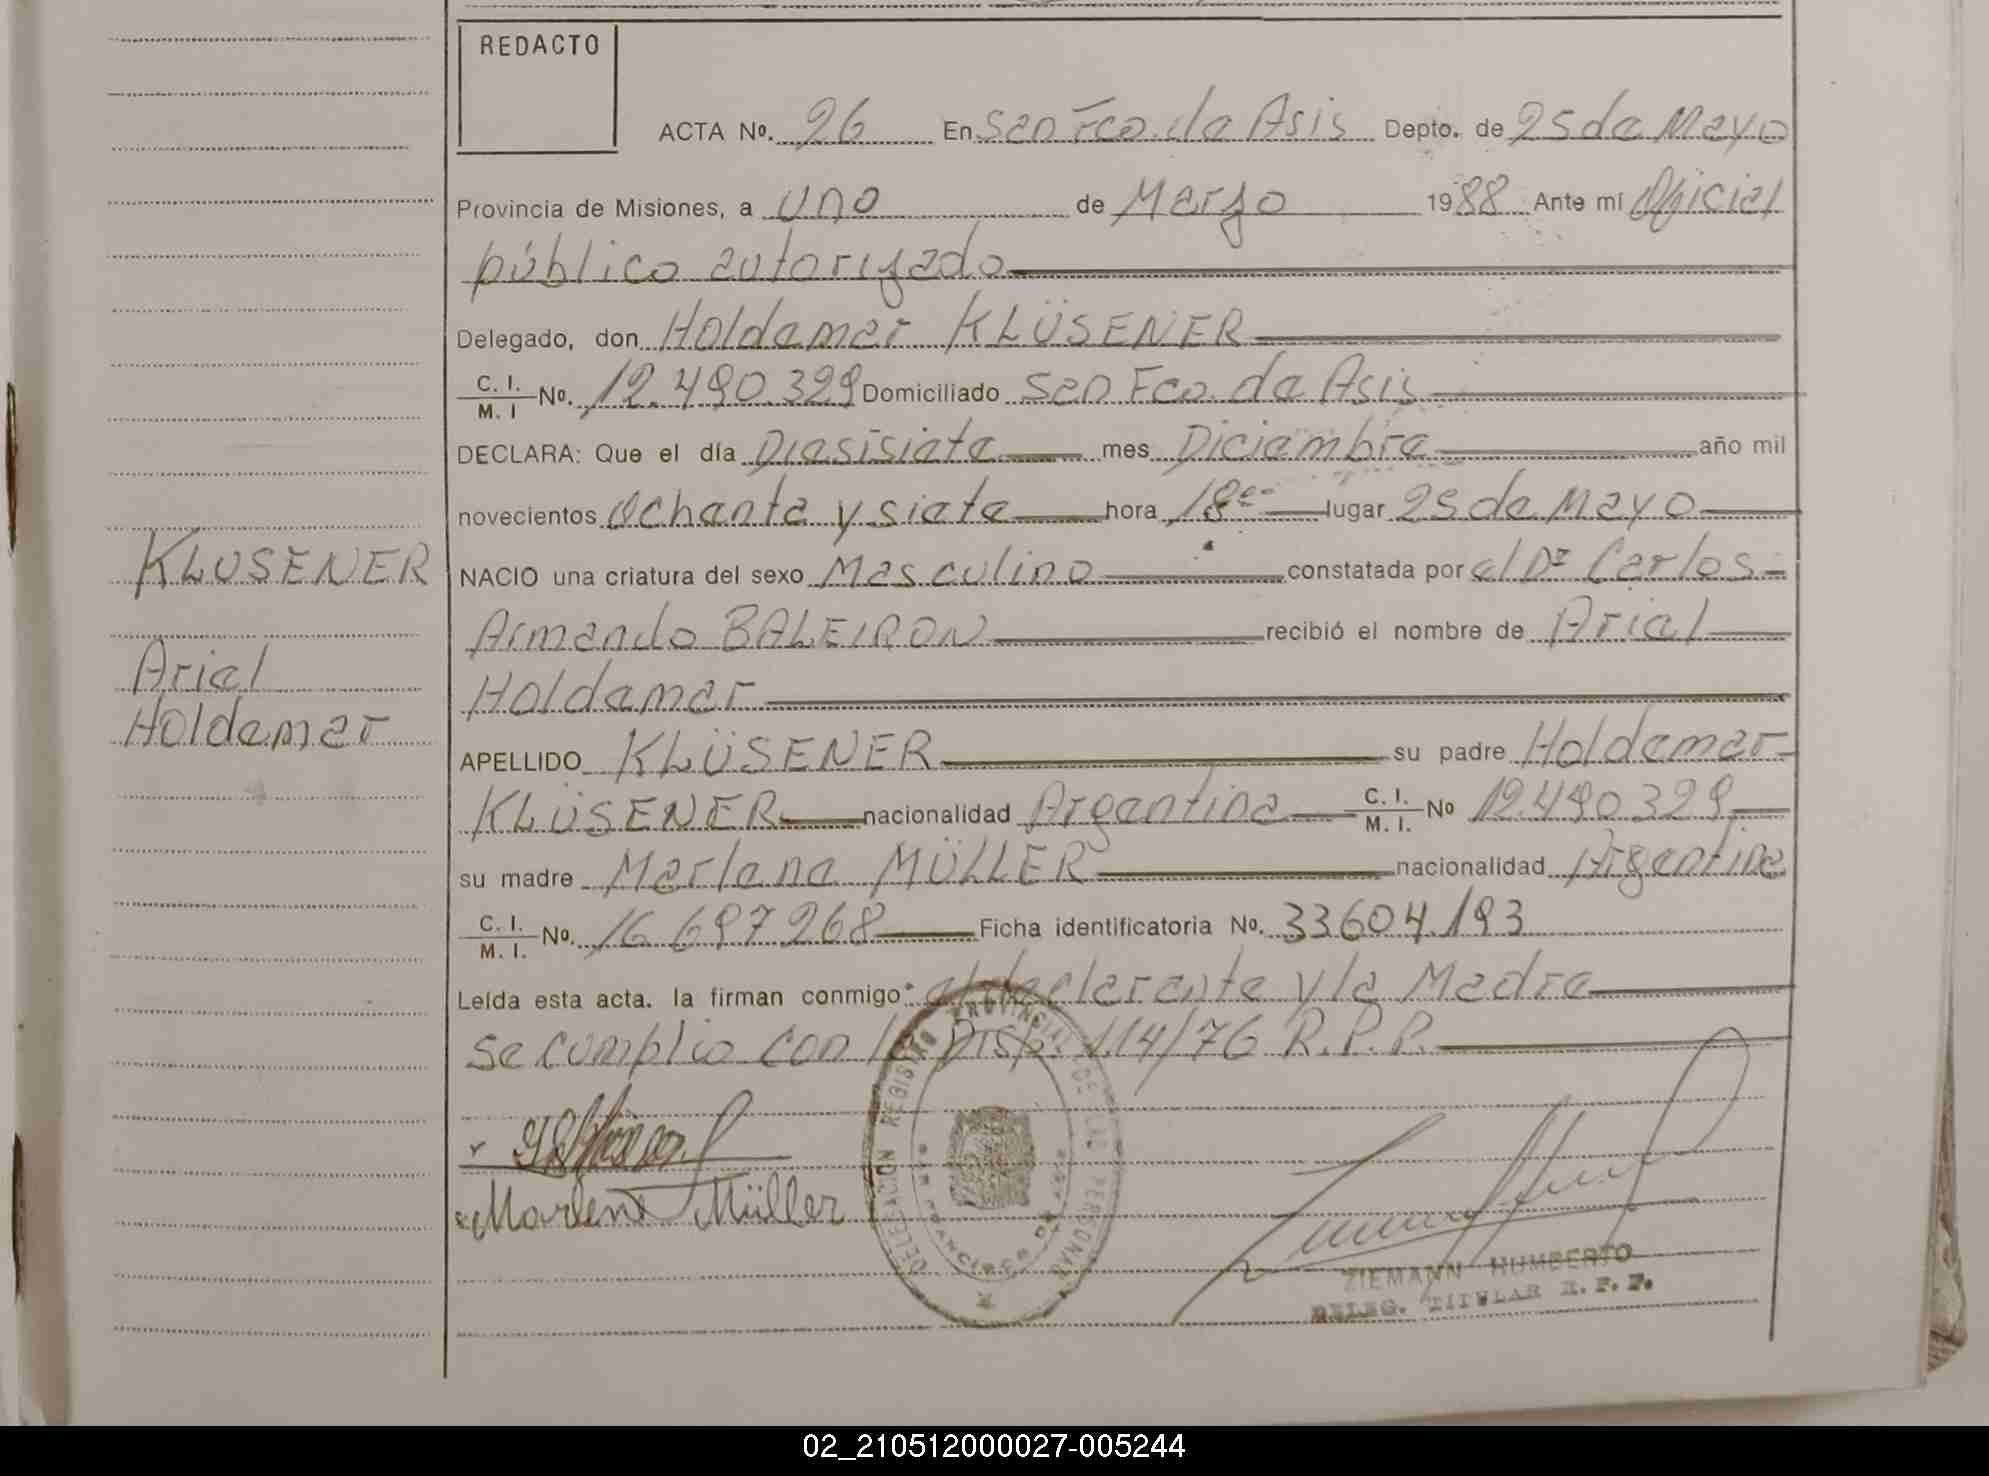 REDACTO
ACTA Nº. 26 En San Fco. de Asis Depto. de 25 de Mayo
Provincia de Misiones, a uno de Marzo 1988 Ante mí Oficial
público autorizado
Delegado, don Holdemar KLÜSENER
C. I. / M. I Nº. 12.490.329 Domiciliado San Fco. de Asis
DECLARA: Que el día Diesisiete mes Diciembre año mil
novecientos Ochenta y siete hora 18 lugar 25 de Mayo
NACIO una criatura del sexo Masculino constatada por el Dr Carlos
Armando BALEIRON recibió el nombre de Ariel
Holdemar
APELLIDO KLÜSENER su padre Holdemar
KLÜSENER nacionalidad Argentina C. I. / M. I. Nº 12.490.329
su madre Marlene MÜLLER nacionalidad Argentina
C. I. / M. I. Nº. 16.697.268 Ficha identificatoria Nº. 33604.193
Leída esta acta. la firman conmigo: el declarante y la Madre
se cumplio con la Disp. 114/76 R.P.P.
Marlene Müller
KLUSENER
Ariel
Holdemar
DELEGACION REGISTRO PROVINCIAL DE LAS PERSONAS
SAN FRANCISCO DE ASIS
ZIEMANN HUMBERTO
DELEG. TITULAR R. P. P.
02_210512000027-005244